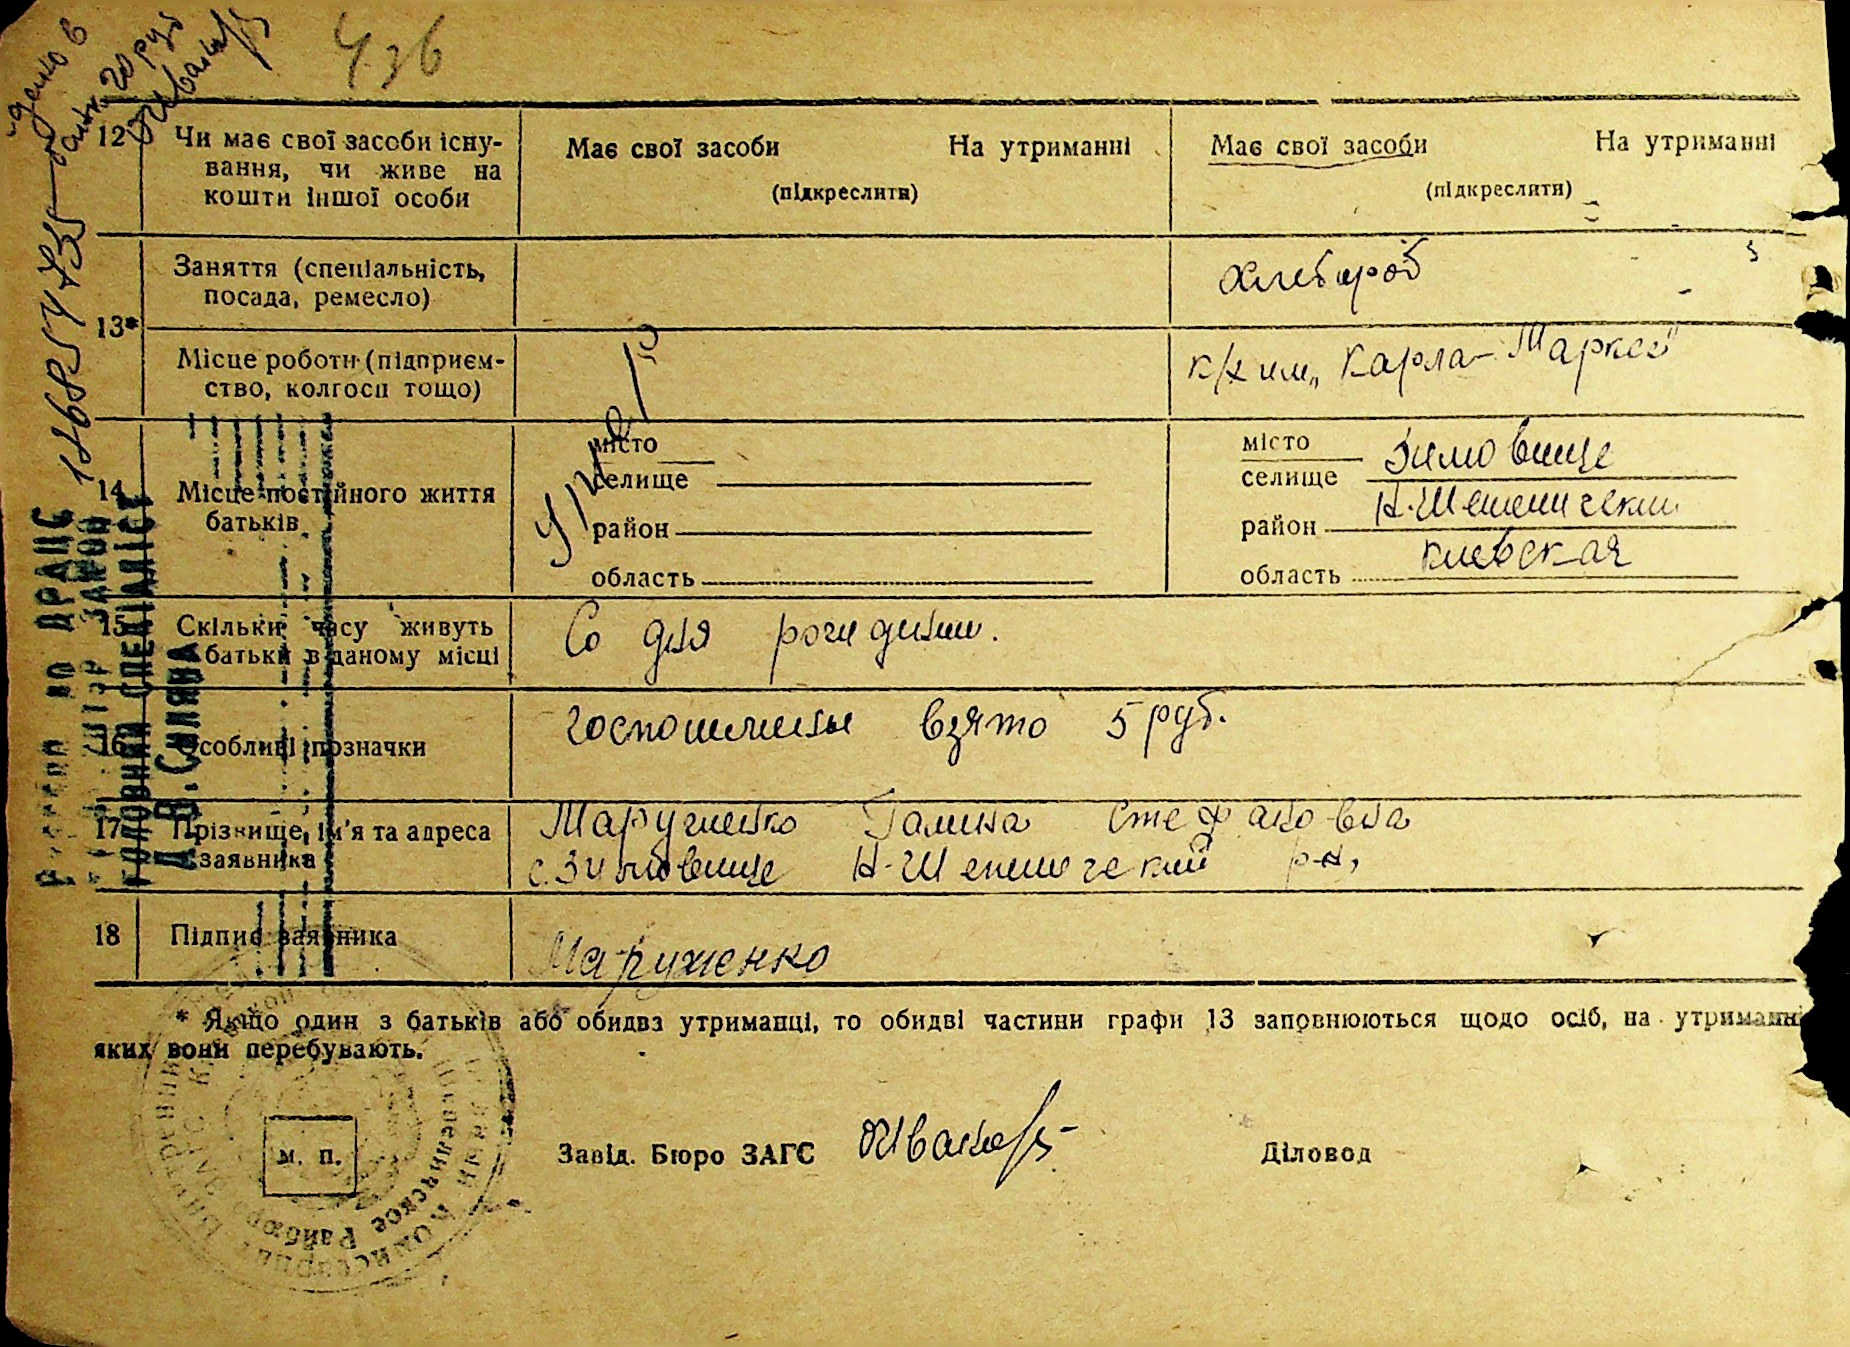 436
12 Чи має свої засоби існу- Має свої засоби На утриманні Має свої засоби На утриманні
вання, чи живе на (підкреслити) (підкреслити)
кошти іншої особи
Заняття (спеціальність, хлебороб
посада, ремесло)
13*
Місце роботи (підприєм- к/х им „Карла-Маркса"
ство, колгосп тощо)
місто місто Зимовище
14 Місце постійного життя селище селище
батьків район район Н-Шепеличский
область область киевская
15 Скільки часу живуть Со дня рождения.
батьки в даному місці
16 Особливі позначки госпошлины взято 5 руб.
17 Прізвище, ім'я та адреса Галина Стефановна
заявника с. Зимовище Н-Шепеличский р-н,
18 Підпис заявника Маруженко
* Якщо один з батьків або обидва утриманці, то обидві частини графи 13 заповнюються щодо осіб, на утриманні
яких вони перебувають.
м. п. Завід. Бюро ЗАГС Діловод
ГОЛОВНИЙ СПЕЦІАЛІСТ